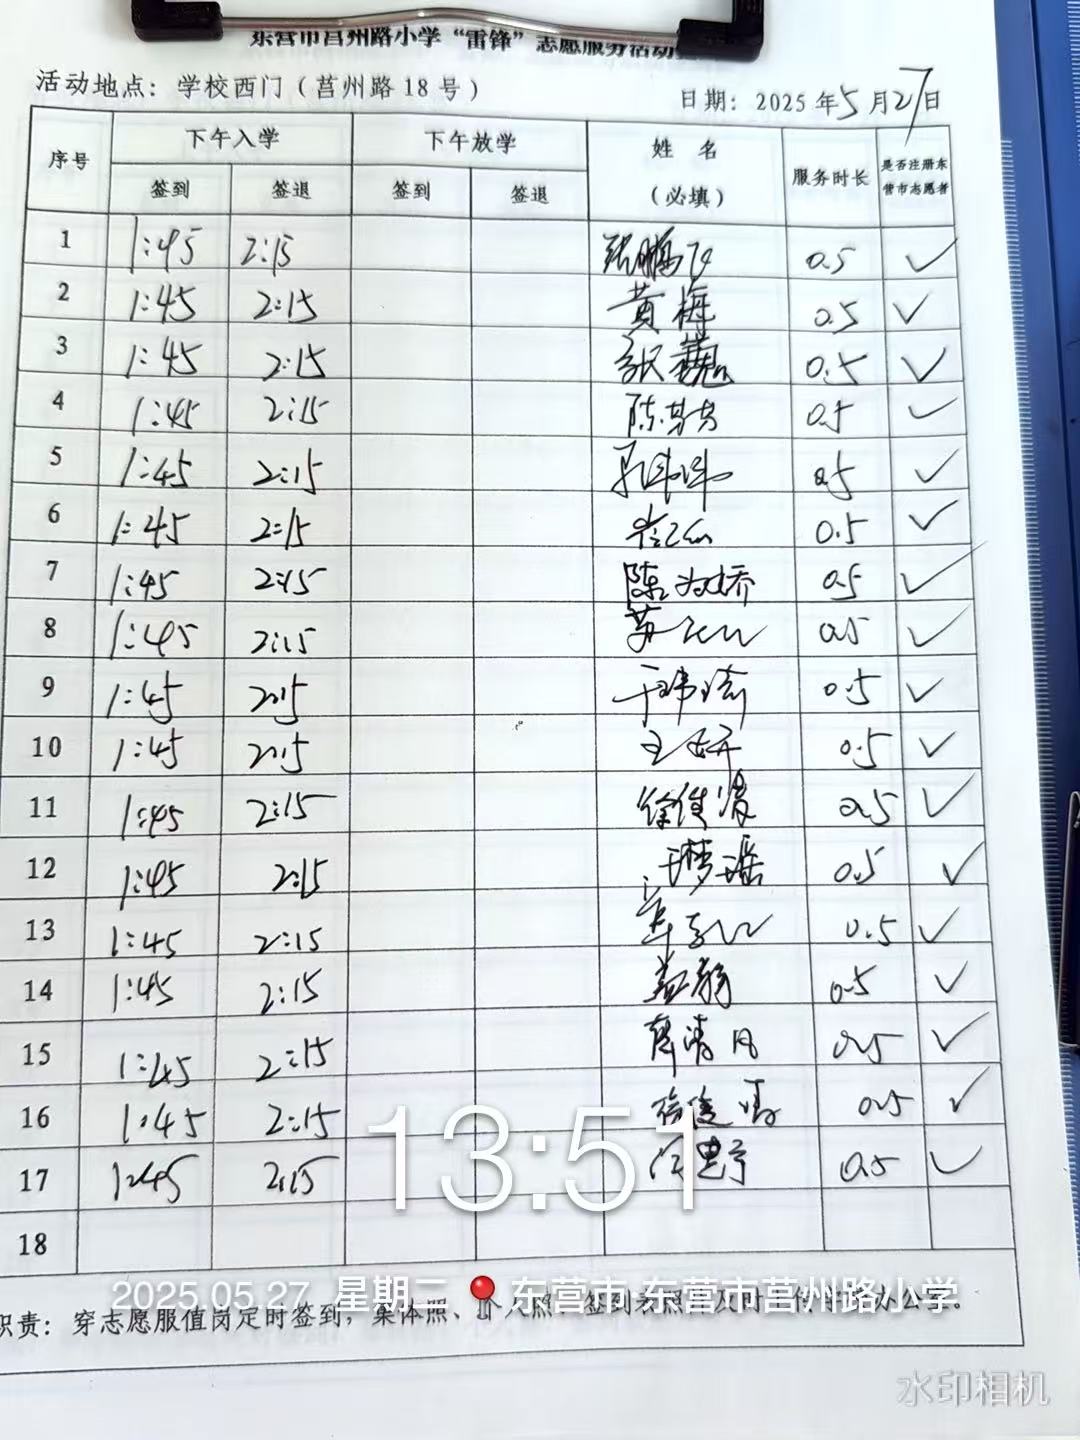 东营市莒州路小学“雷锋”志愿服务活动
活动地点：学校西门（莒州路18号）
日期：2025年5月27日
序号 下午入学 下午放学 姓名（必填） 服务时长 是否注册东营市志愿者
签到 签退 签到 签退
1 1:45 2:15 张鹏飞 0.5 ✓
2 1:45 2:15 黄梅 0.5 ✓
3 1:45 2:15 张巍 0.5 ✓
4 1:45 2:15 0.5 ✓
5 1:45 2:15 0.5 ✓
6 1:45 2:15 0.5 ✓
7 1:45 2:15 0.5 ✓
8 1:45 2:15 0.5 ✓
9 1:45 2:15 0.5 ✓
10 1:45 2:15 王妍 0.5 ✓
11 1:45 2:15 0.5 ✓
12 1:45 2:15 王梦瑶 0.5 ✓
13 1:45 2:15 0.5 ✓
14 1:45 2:15 0.5 ✓
15 1:45 2:15 0.5 ✓
16 1:45 2:15 0.5 ✓
17 1:45 2:15 0.5 ✓
18
13:51
2025.05.27 星期二 东营市·东营市莒州路小学
职责：穿志愿服值岗定时签到，集体照、个人照、签到表照
水印相机